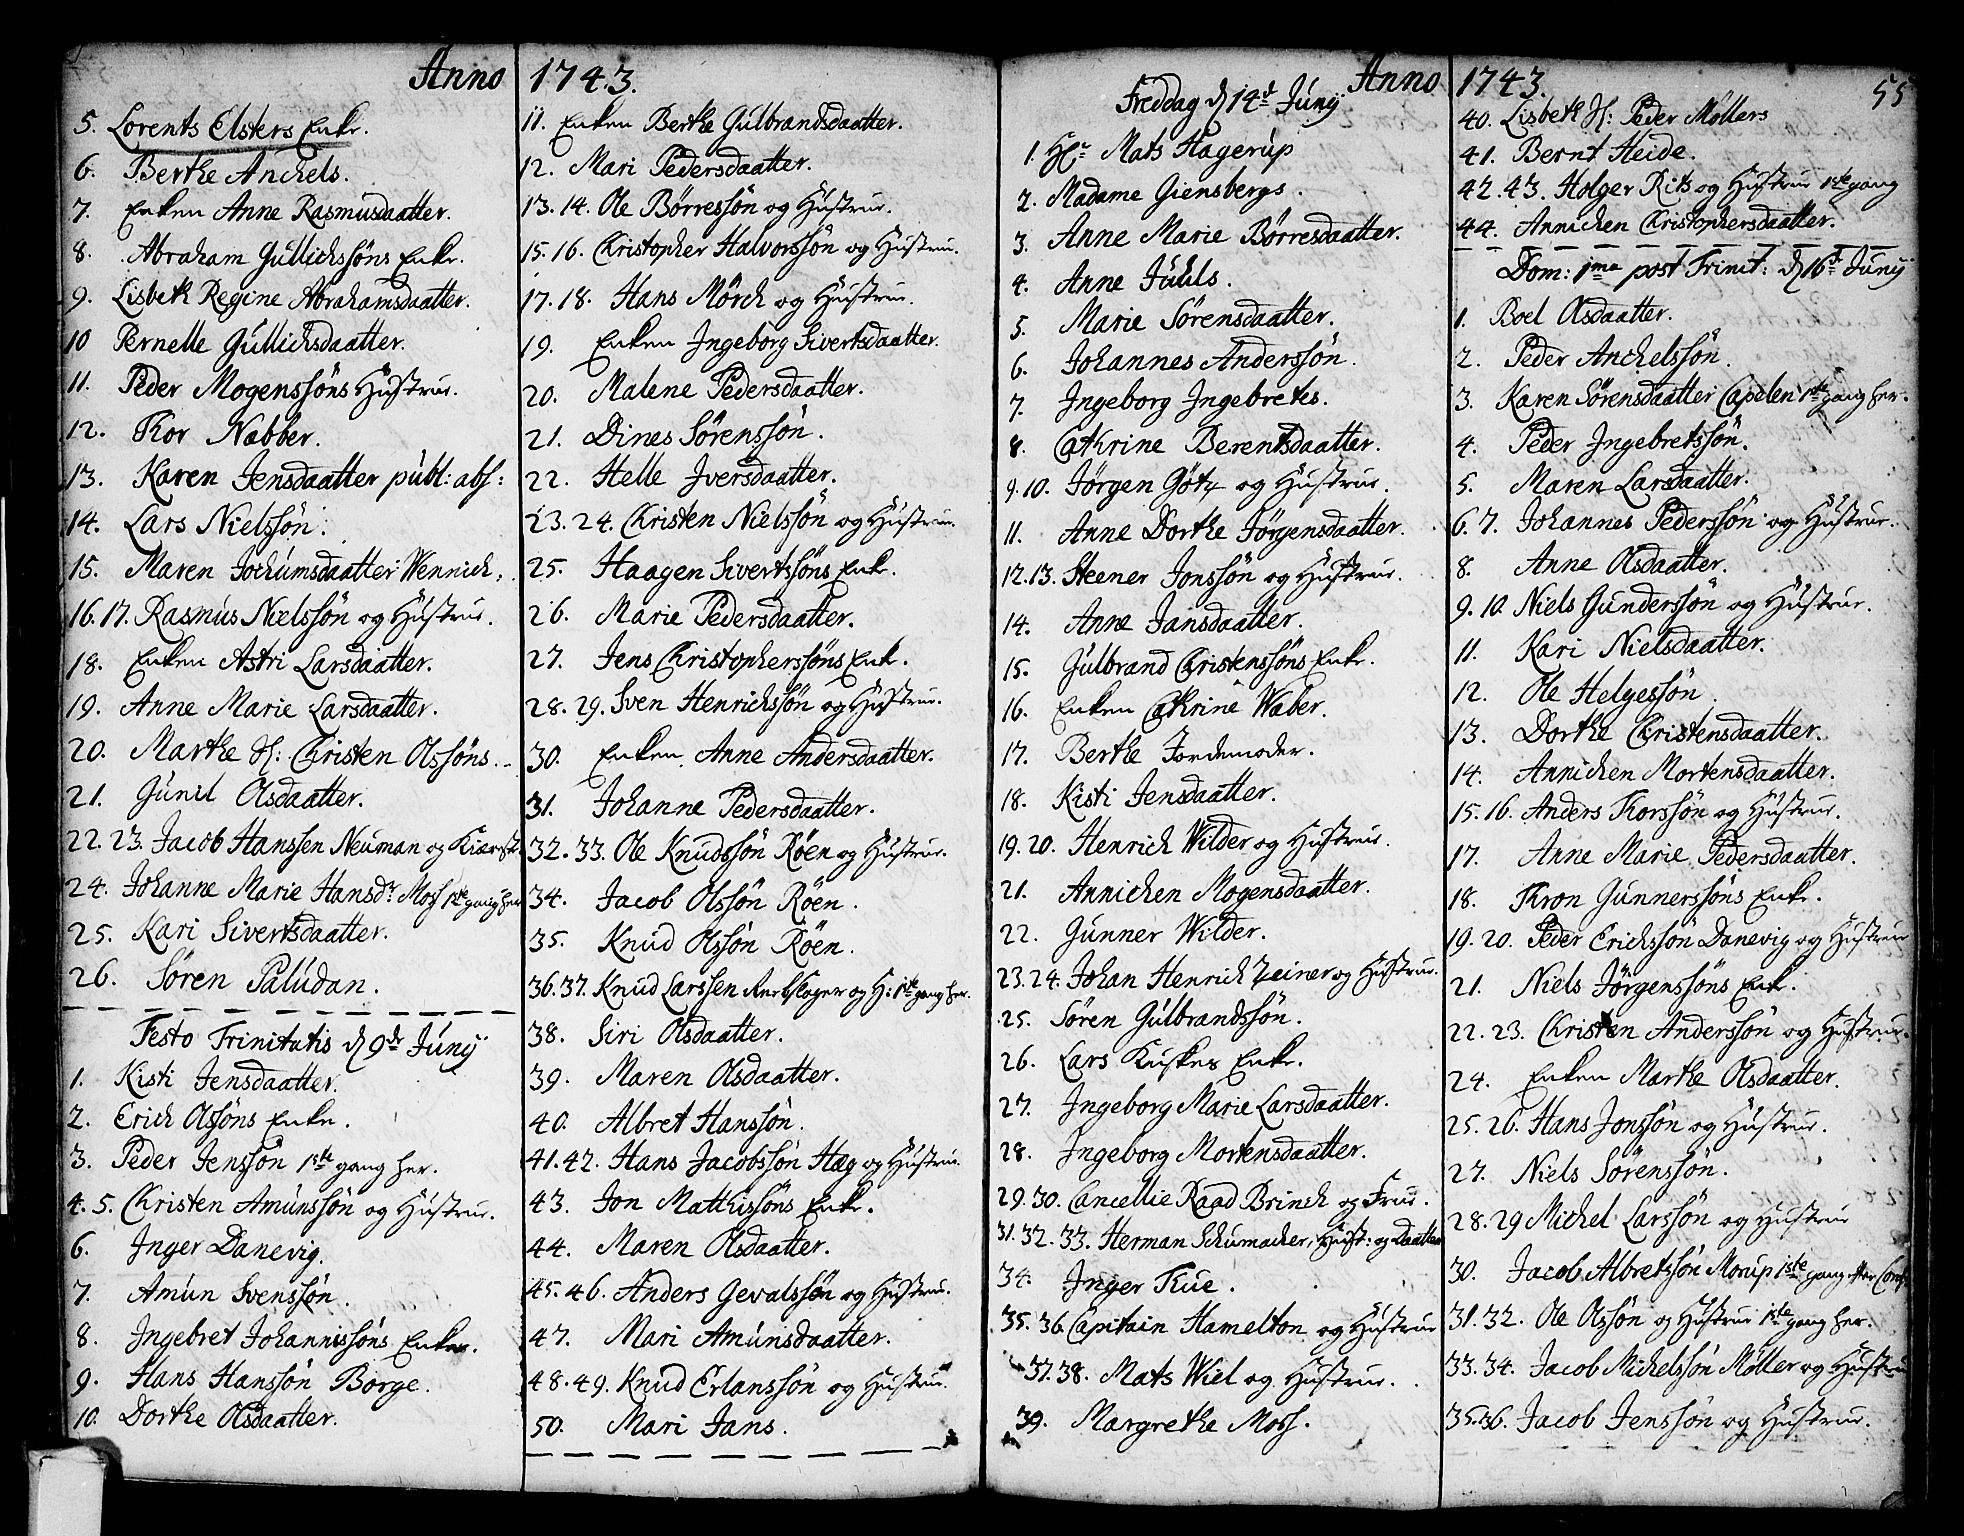 Anno 1743.
5. Lorents Elsters Enke.
6. Berthe Anchels.
7. Enken Anne Rasmusdaatter.
8. Abraham Gullichssöns Enke.
9. Lisbeth Regine Abrahamsdaatter.
10 Pernelle Gullichsdaatter.
11. Peder Mogenssöns Hustrue.
12. Thor Nabber.
13. Karen Jensdaatter publ: abs:
14. Lars Nielssön.
15. Maren Jochumsdaatter Wennich.
16. 17. Rasmus Nielssön og Hustrue.
18. Enken Astri Larsdaatter.
19. Anne Marie Larsdaatter.
20. Marthe H: Christen Olssöns.
21. Gunil Olsdaatter.
22. 23. Jacob Hanssen Neuman og Kiærest.
24. Johanne Marie Hansdr Moss 1ste gang her
25. Kari Sivertsdaatter.
26. Sören Paludan.
Festo Trinitatis d 9de Junij
1. Kisti Jensdaatter.
2. Erich Olssöns Enke.
3. Peder Jenssön 1ste gang her.
4. 5. Christen Amunssön og Hustrue.
6. Inger Danevig.
7. Amun Svenssön.
8. Ingebret Johannissöns Enke.
9. Hans Hanssön Borge.
10. Dorthe Olsdaatter.
11. Enken Berthe Gulbrandsdaatter.
12. Mari Pedersdaatter.
13. 14. Ole Börressön og Hustrue.
15. 16. Christopher Halvorssön og Hustrue.
17. 18. Hans Mörch og Hustrue.
19. Enken Ingeborg Sivertsdaatter.
20. Malene Pedersdaatter.
21. Dines Sörenssön.
22. Helle Iversdaatter.
23. 24. Christen Nielssön og Hustrue.
25. Haagen Sivertssöns Enke.
26. Marie Pedersdaatter.
27. Jens Christopherssöns Enke.
28. 29. Sven Henrichssön og Hustrue.
30. Enken Anne Andersdaatter.
31. Johanne Pedersdaatter.
32. 33. Ole Knudssön Röen og Hustrue.
34. Jacob Olssön Röen.
35. Knud Olssön Röen.
36. 37. Knud Larssen og H: 1ste gang her.
38. Siri Olsdaatter.
39. Maren Olsdaatter.
40. Albret Hanssön.
41. 42. Hans Jacobssön Hæg og Hustrue.
43. Jon Matthissöns Enke.
44. Maren Olsdaatter.
45. 46. Anders Gevalssön og Hustrue.
47. Mari Amunsdaatter.
48. 49. Knud Erlanssön og Hustrue.
50. Mari Jans.
Anno 1743.
55
Freddag d 14de Junij
1. Hr Mats Hagerup
2. Madame Giensbergs.
3. Anne Marie Börresdaatter.
4. Anne Juuls.
5. Marie Sörensdaatter.
6. Johannes Anderssön.
7. Ingeborg Ingebrets.
8. Cathrine Berentsdaatter.
9. 10. Jörgen Götz og Hustrue.
11. Anne Dorthe Jörgensdaatter.
12. 13. Steener Jonssön og Hustrue.
14. Anne Jansdaatter.
15. Gulbrand Christenssöns Enke.
16. Enken Cathrine Waber.
17. Berthe Jordemoder.
18. Kisti Jensdaatter.
19. 20. Henrich Wilder og Hustrue.
21. Annichen Mogensdaatter.
22. Gunner Wilder.
23. 24. Johan Henrich Zeiner og Hustrue.
25. Sören Gulbrandssön.
26. Lars Kuskes Enke.
27. Ingeborg Marie Larsdaatter.
28. Ingeborg Mortensdaatter.
29. 30. Cancellie Raad Brinch og Frue.
31. 32. 33. Herman Schumacher, Hust: og Daatter
34. Inger Thue.
35. 36. Capitain Hamelton og Hustrue
37. 38. Mats Wiel og Hustrue.
39. Margrethe Moss.
40. Lisbeth H: Peder Möllers
41. Bernt Heide.
42. 43. Holger Rits og Hustrue 1ste gang
44. Annichen Christophersdaatter.
Dom: 1ma post Trinit: d 16de Junij
1. Boel Olsdaatter.
2. Peder Anchelssön.
3. Karen Sörensdaatter Capelen 1ste gang her.
4. Peder Ingebretssön.
5. Maren Larsdaatter.
6. 7. Johannes Pederssön og Hustrue.
8. Anne Olsdaatter.
9. 10. Niels Gunderssön og Hustrue.
11. Kari Nielsdaatter.
12. Ole Helgessön.
13. Dorthe Christensdaatter.
14. Annichen Mortensdaatter.
15. 16. Anders Thorssön og Hustrue.
17. Anne Marie Pedersdaatter.
18. Thron Gunnerssöns Enke.
19. 20. Peder Erichssön Danevig og Hustrue
21. Niels Jörgenssöns Enke.
22. 23. Christen Anderssön og Hustrue.
24. Enken Marthe Olsdaatter.
25. 26. Hans Jonssön og Hustrue.
27. Niels Sörenssön.
28. 29 Michel Larssön og Hustrue
30. Jacob Albretssön Morup 1ste gang efter Conf.
31. 32. Ole Olssön og Hustrue 1ste gang her.
33. 34. Jacob Michelssön Möller og Hustrue
35. 36. Jacob Jenssön og Hustrue.